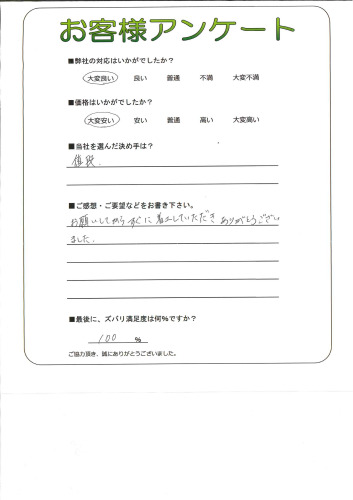 お客様アンケート
■弊社の対応はいかがでしたか?
大変良い 良い 普通 不満 大変不満
■価格はいかがでしたか?
大変安い 安い 普通 高い 大変高い
■当社を選んだ決め手は?
値段.
■ご感想・ご要望などをお書き下さい。
お願いしてからすぐに着工していただきありがとうござい
ました.
■最後に、ズバリ満足度は何%ですか?
100 %
ご協力頂き、誠にありがとうございました。